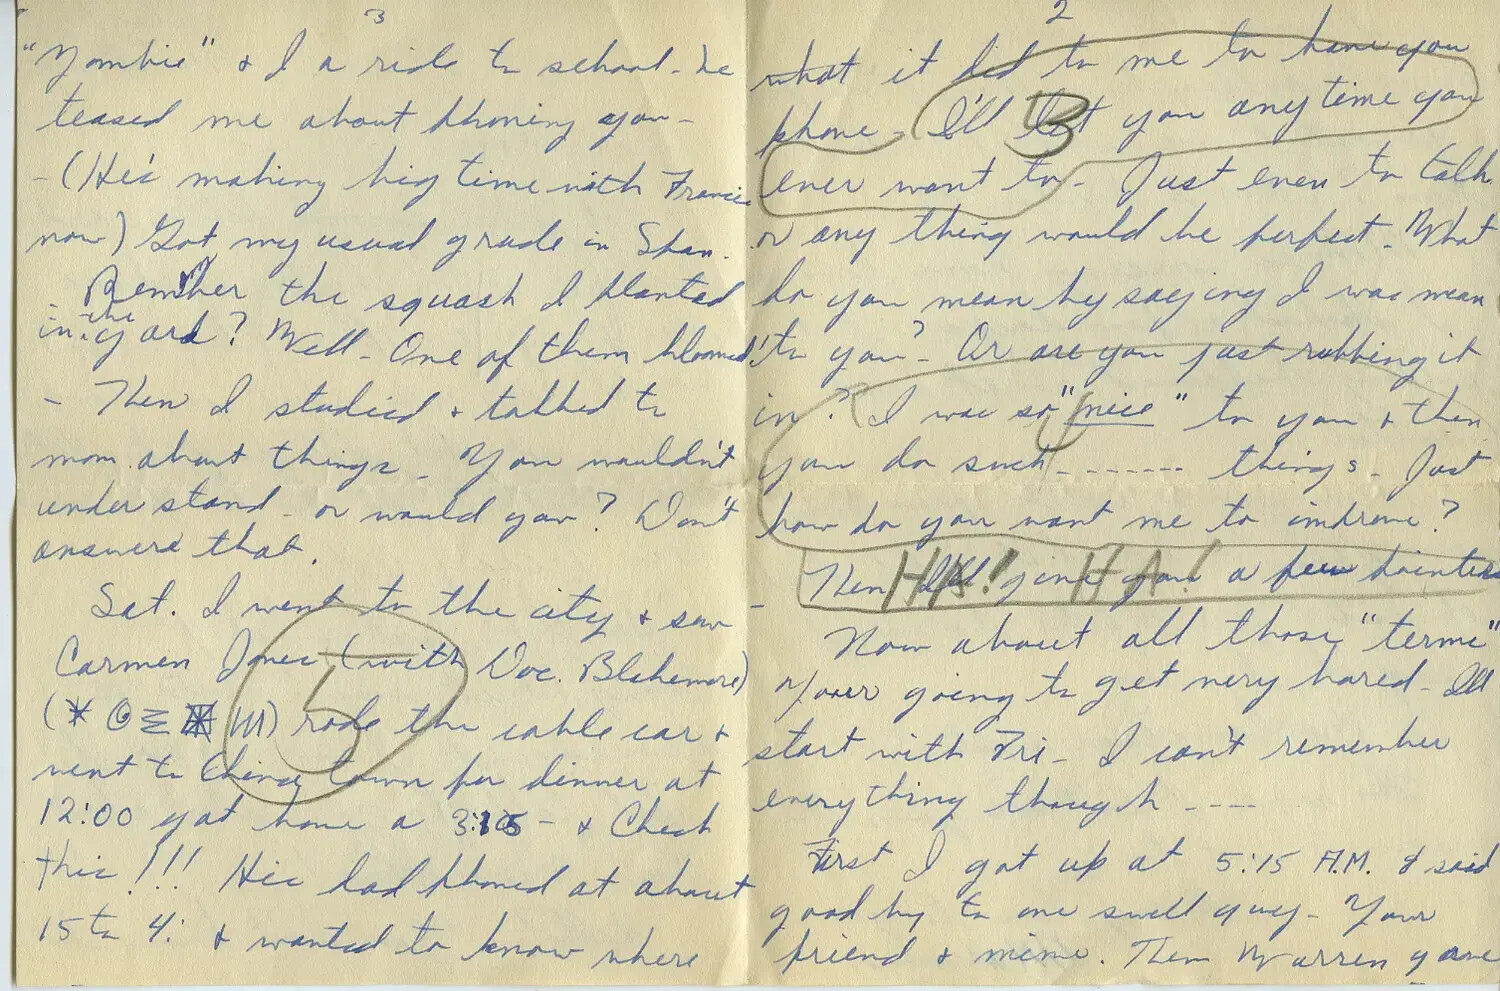 2
what it did to me to have you
phone - I'll let you any time you
ever want to - Just even to talk
or any thing would be perfect. What
do you mean by saying I was mean
to you? - Or are you just rubbing it
in? I was so "nice" to you & then
you do such - - - - - - - things - Just
how do you want me to improve?
- Then I'll give you a few pointers
HA! HA!
Now about all those "terms"
your going to get very bored - Ill
start with Fri - I can't remember
everything though - - - -
First I got up at 5:15 A.M. & said
good by to one swell guy - Your
friend & mine. Then Warren gave
3
"Zombie" & I a ride to school - he
teased me about phoning you -
- (He's making big time with Francie
now) Got my usual grade in Span.
- Remember the squash I planted
in the yard? Well - One of them bloomed!
- Then I studied & talked to
mom about things - You wouldn't
understand - or would you? Don't
answere that.
Sat. I went to the city & saw
Carmen Jones (with Doc. Blakemore)
rode the cable car &
went to China town for dinner at
12:00 got home a 3:15 - & Check
this!!! Hic had phoned at about
15 to 4: & wanted to know where
B
5